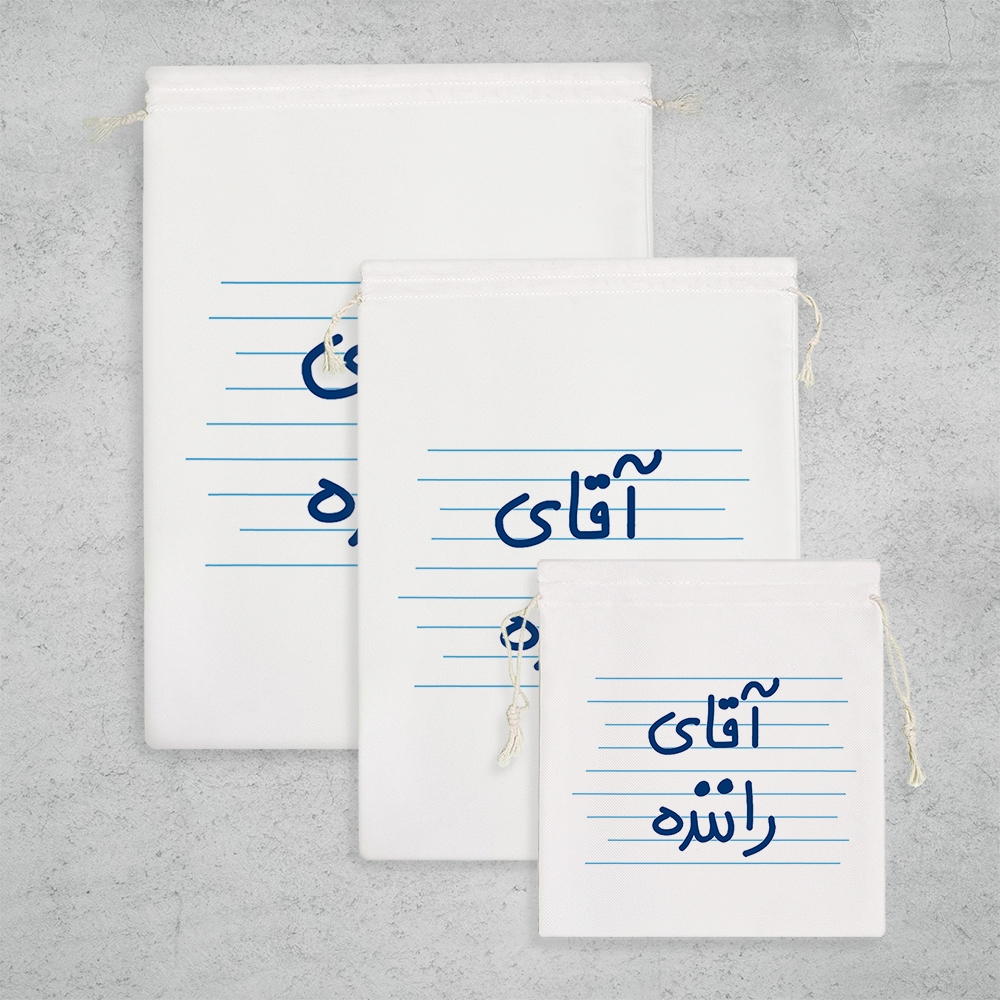 آقای
آقای
راننده